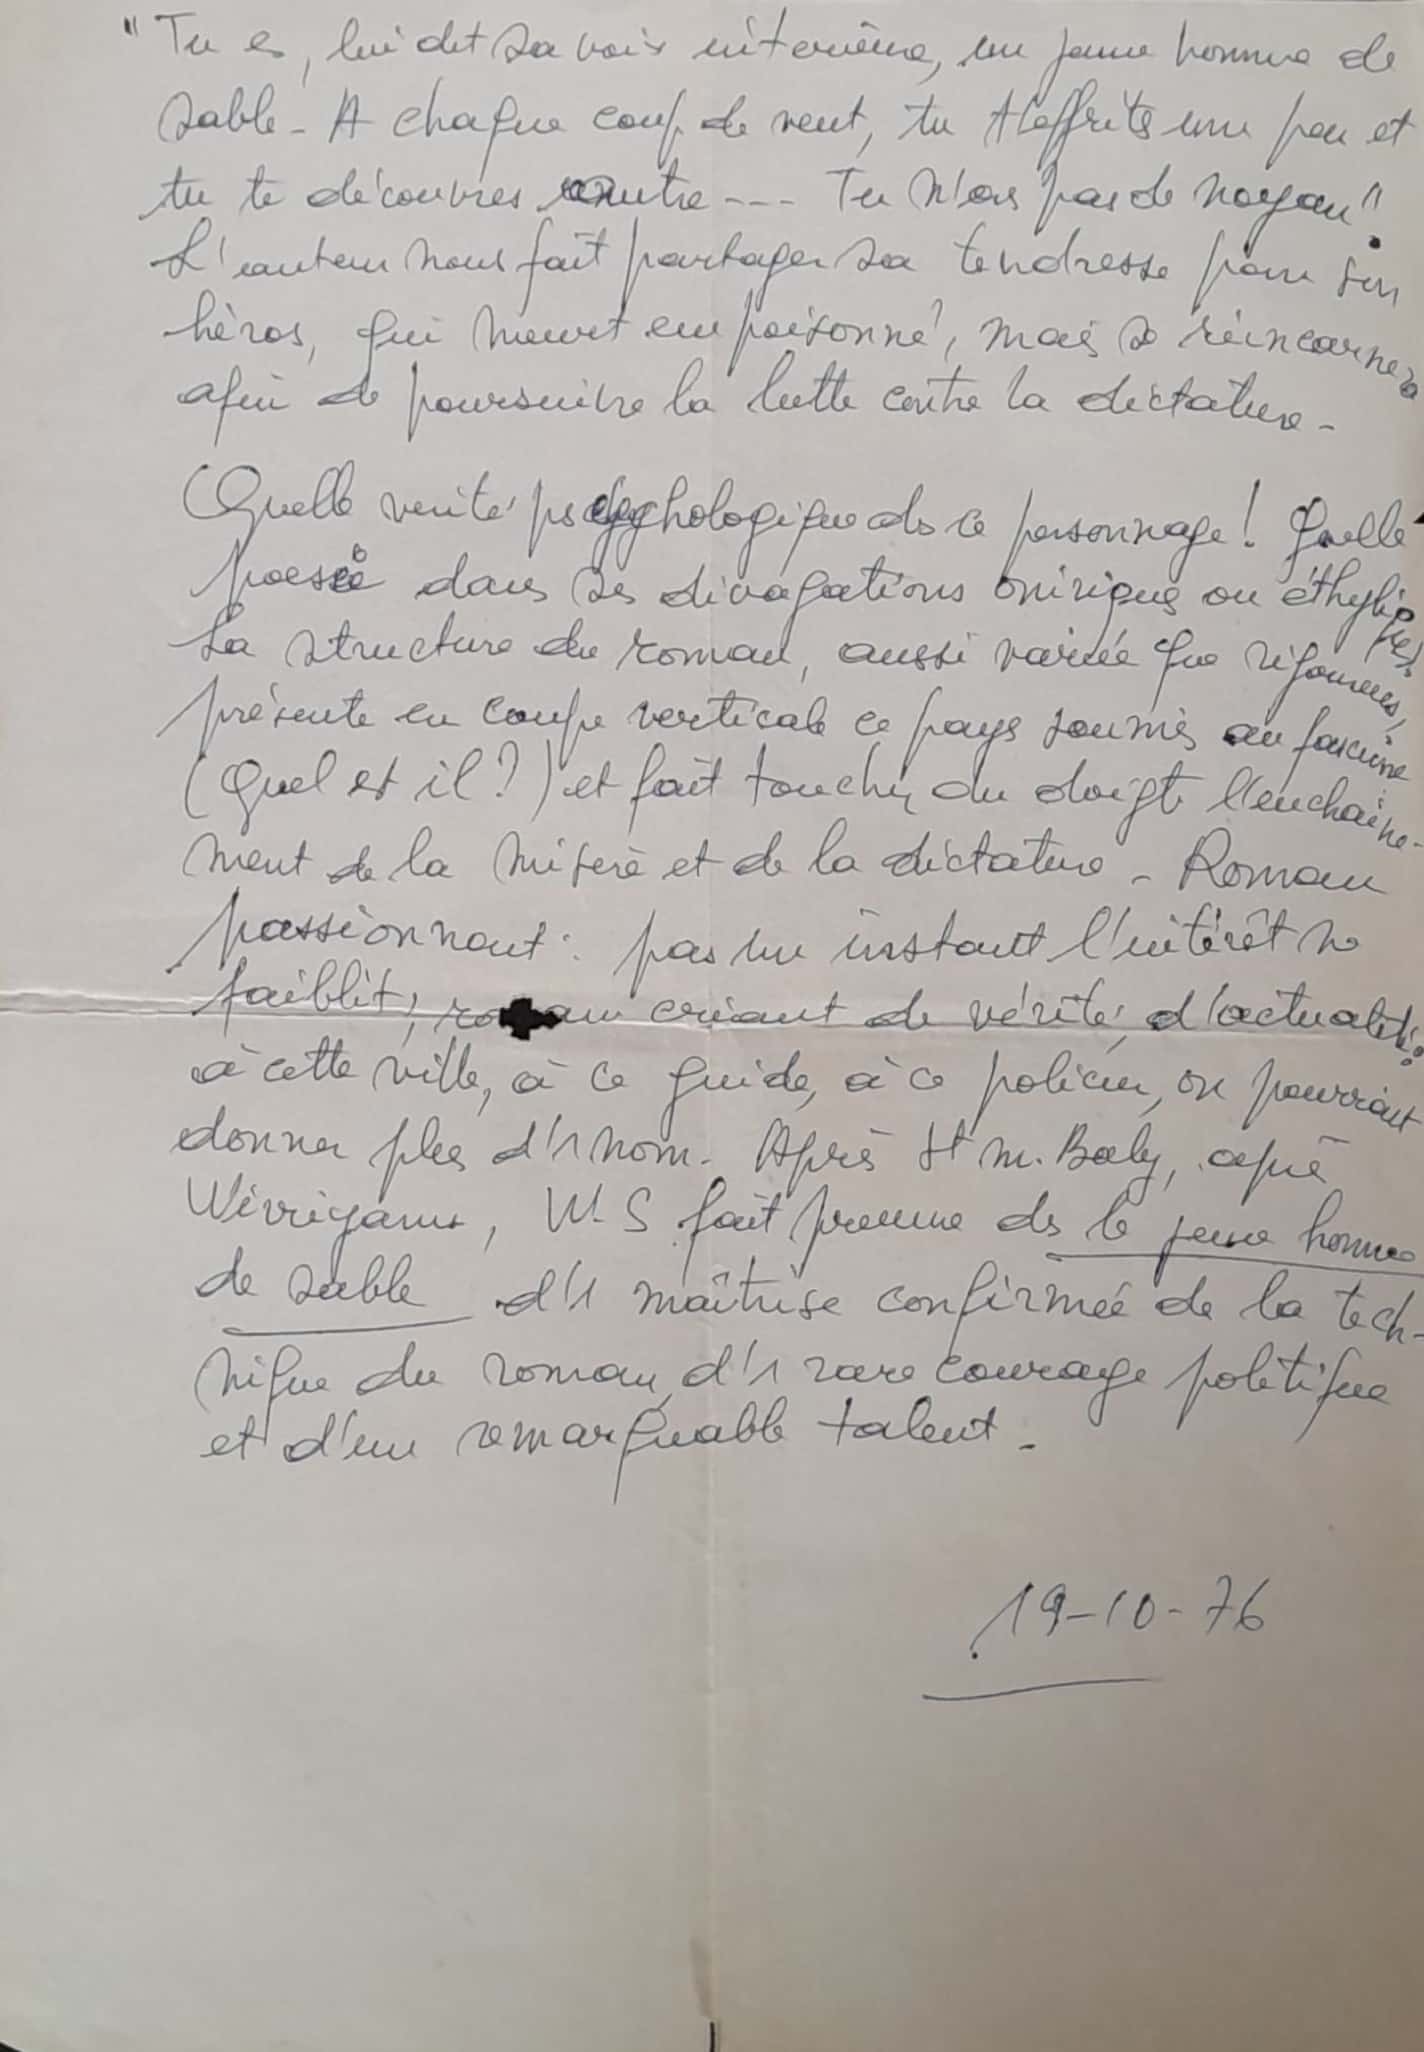 "Tu es, lui dit sa voix intérieure, un jeune homme de
sable - A chaque coup de vent, tu t'effrites un peu et
tu te découvres autre --- Tu n'as pas de noyau".
L'auteur nous fait partager sa tendresse pour son
héros, qui meurt empoisonné, mais se réincarnera
afin de poursuivre la lutte contre la dictature -
Quelle vérité psychologique ds ce personnage ! Quelle
poésie dans ses divagations oniriques ou éthyliques.
La structure du roman, aussi variée que rigoureuse,
présente en coupe verticale ce pays soumis au fascisme
(Quel est il ?) et fait toucher du doigt l'enchaîne-
ment de la misère et de la dictature - Roman
passionnant : pas un instant l'intérêt ne
faiblit ; roman criant de vérité, d'actualité :
à cette ville, à ce guide, à ce policier, on pourrait
donner plus d'1 nom. Après St M. Baly, après
Wirriyamu, W. S fait preuve ds le jeune homme
de sable d'1 maîtrise confirmée de la tech-
nique du roman, d'1 rare courage politique
et d'un remarquable talent -
19-10-76